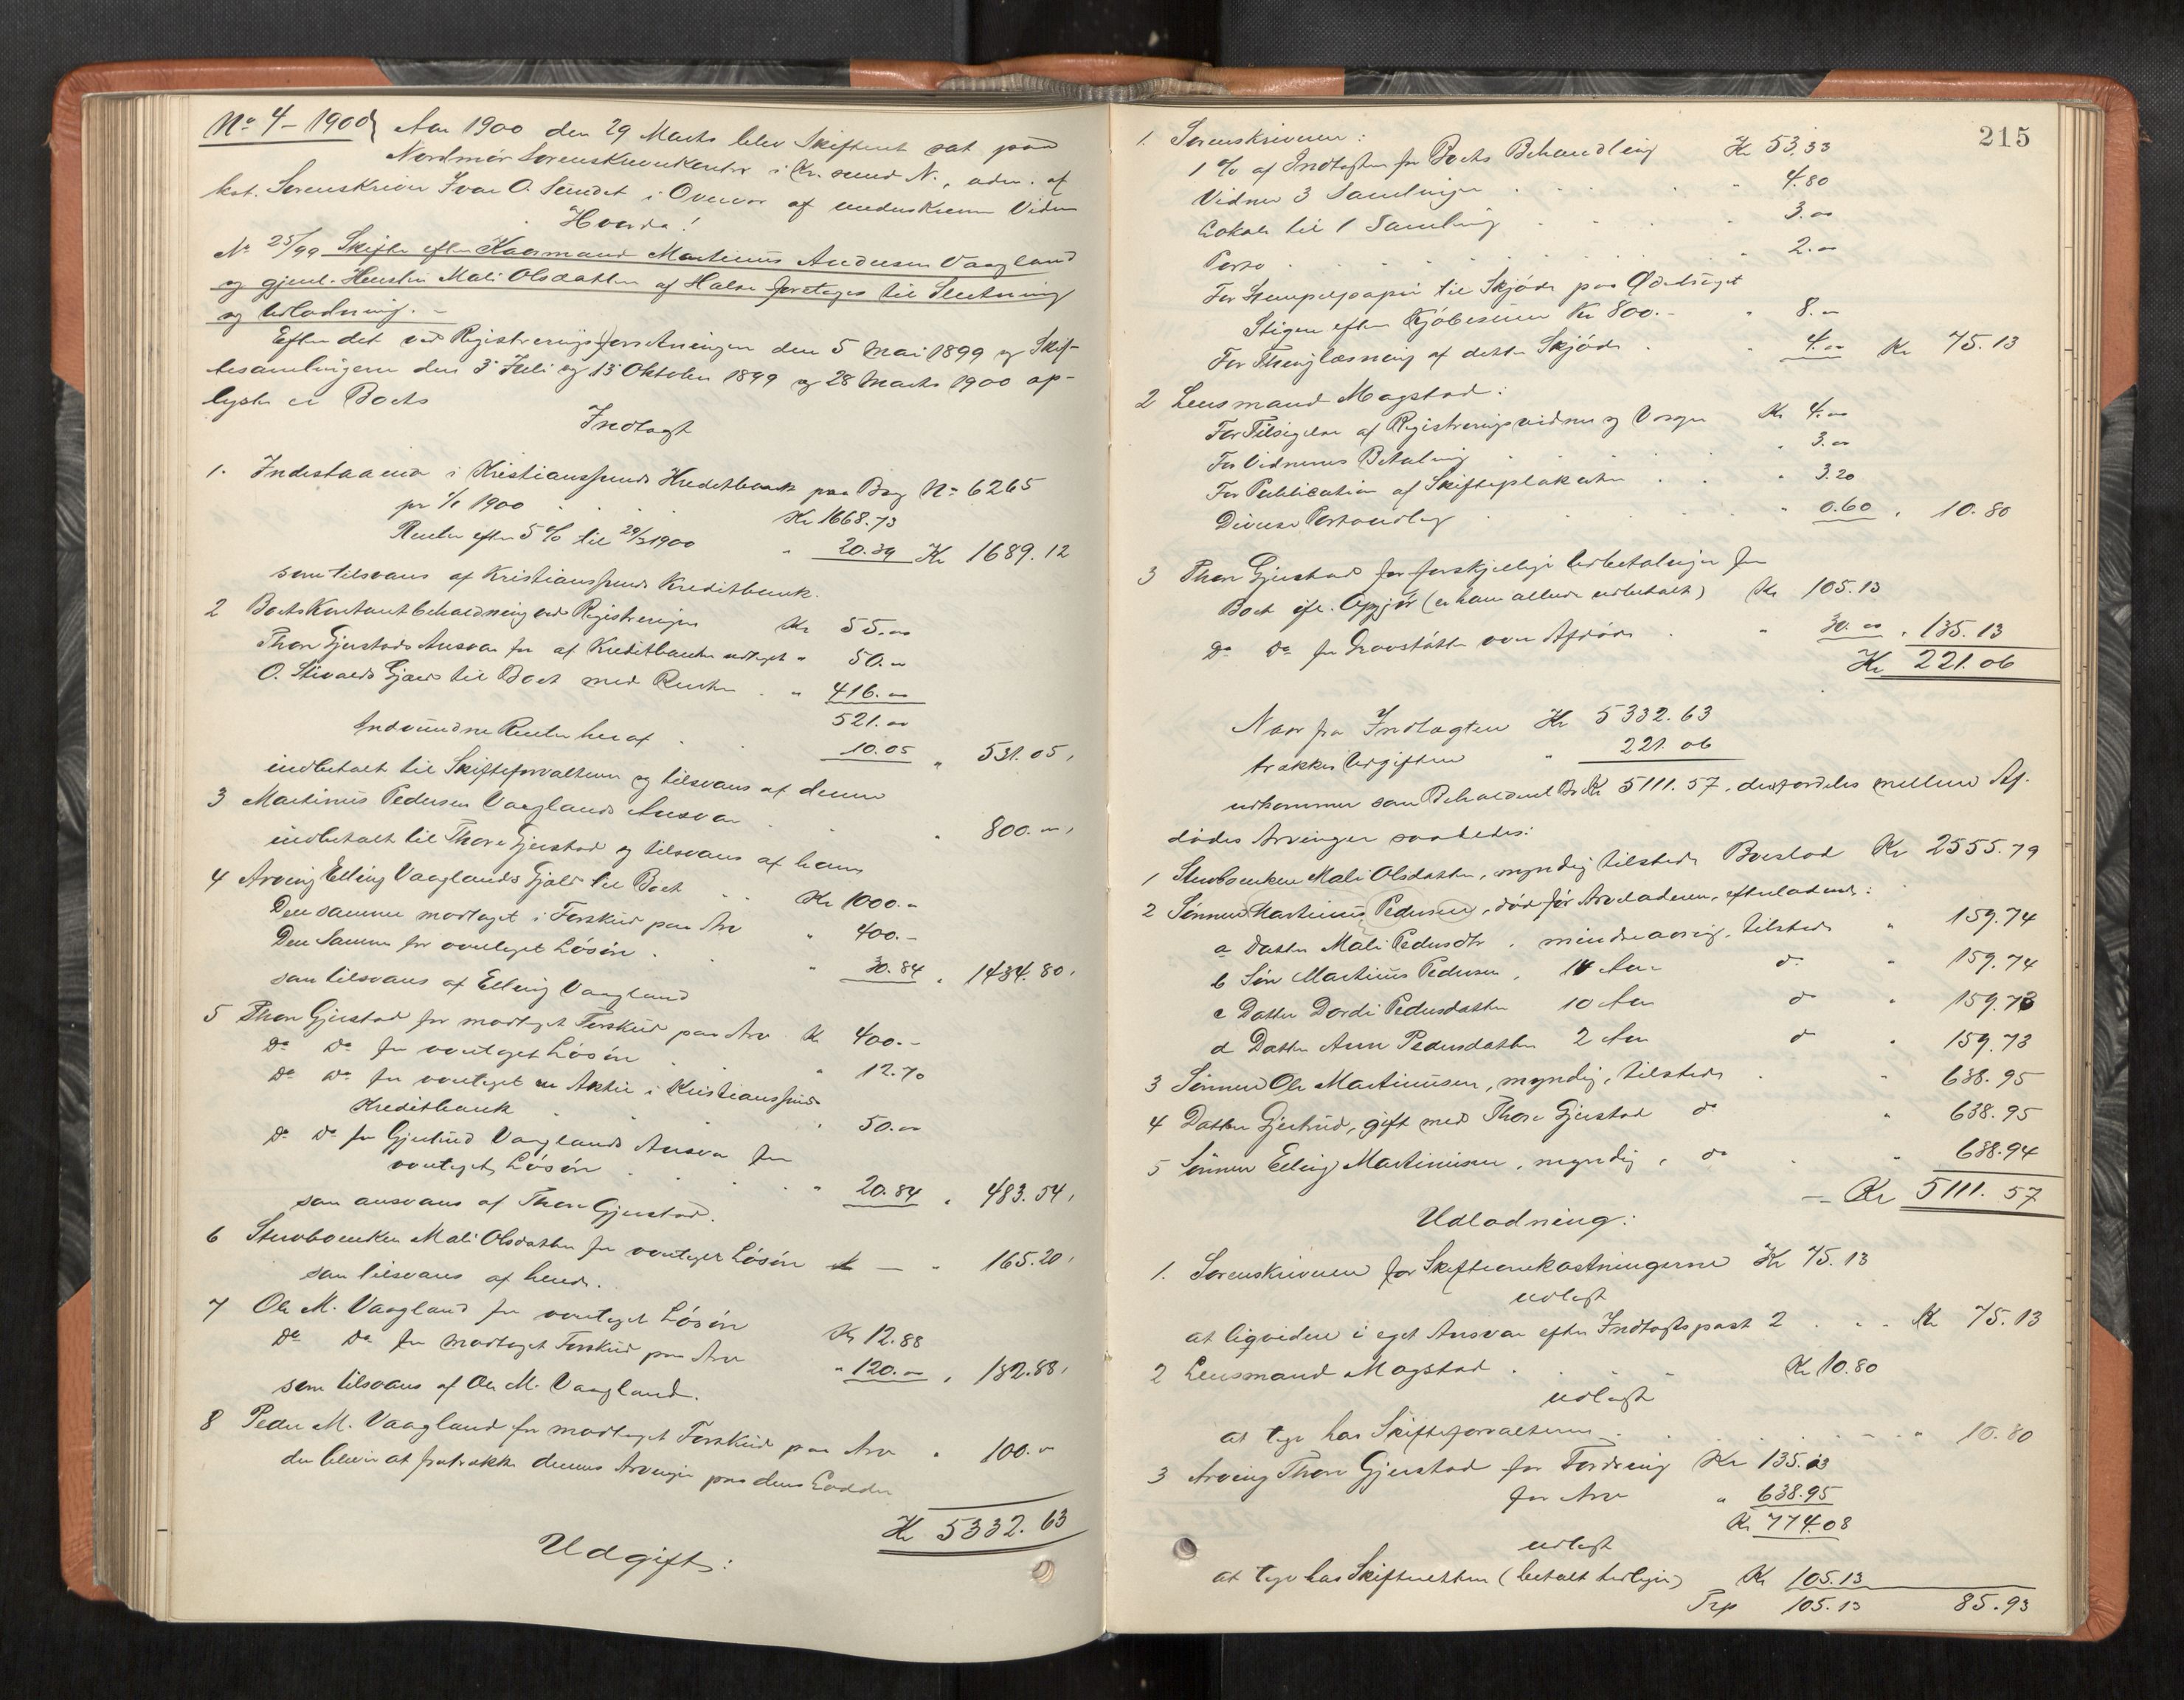 No 4 – 1900 Aar 1900 den 29 Marts blev Skifteret sat paa
Nordmør Sorenskriverkontor i Kr.sund N., adm. af
kst. Sorenskriver Ivar O. Sundet i Overvær af underskrevne Vidner
Hvorda!
No 25/99 Skifte efter Kaarmand Martinus Andersen Vaagland
og gjenl. Hustru Mali Olsdatter af Halse foretages til Slutning
og Udlodning. –
Efter det ved Registreringsforretningen den 5 Mai 1899 og Skif-
tesamlingerne den 3 Juli og 13 Oktober 1899 og 28 Marts 1900 op-
lyste er Boets
Indtægt
1. Indestaaende i Kristianssunds Kreditbank paa Bog No 6265
pr 1/1 1900 . . . Kr 1668.73
Renter efter 5 % til 29/3 1900 " 20.39 Kr 1689.12
som tilsvares af Kristianssunds Kreditbank.
2 Boets Kontantbeholdning ved Registreringen Kr 55.00
Thore Gjerstads Ansvar for af Kreditbanken udtaget " 50.00
O. Stivalds Gjæld til Boet med Renter . " 416.00
521.00
Indvundne Renter heraf . . 10.05 " 531.05,
indbetalt til Skifteforvalteren og tilsvares af denne
3 Martinus Pedersen Vaaglands Ansvar . . " 800.00,
indbetalt til Thore Gjerstad og tilsvares af ham
4 Arving Elling Vaaglands Gjæld til Boet . . Kr 1000.00
Den samme modtaget i Forskud paa Arv " 400.–
Den Samme for overtaget Løsøre . . " 30.84 " 1434.80,
som tilsvares af Elling Vaagland
5 Thore Gjerstad for modtaget Forskud paa Arv Kr 400.–
Do Do for overtaget Løsøre . " 12.70
Do Do for overtaget en Aktie i Kristianssunds
Kreditbank . . " 50.00
Do Do for Gjertrud Vaaglands Ansvar for
overtaget Løsøre . . . " 20.84 " 483.54,
som ansvares af Thore Gjerstad.
6 Stervboenken Mali Olsdatter for overtaget Løsøre – " 165.20,
som tilsvares af hende.
7 Ole M. Vaagland for overtaget Løsøre Kr 12.88
Do Do for modtaget Forskud paa Arv " 120.00 " 132.88,
som tilsvares af Ole M. Vaagland.
8 Peder M. Vaagland for modtaget Forskud paa Arv " 100.00
der bliver at fratrække dennes Arvinger paa deres Lodder
Kr 5332.63
Udgift:
215
1. Sorenskriveren:
1 % af Indtægten for Boets Behandling Kr 53.33
Vidner 3 Samlinger . . . " 4.80
Lokale til 1 Samling . . . " 3.00
Porto . . . . " 2.00
For Stempelpapir til Skjøde paa Ødetrøget
Stigen efter Kjøbesum Kr 800.– " 8.00
For Thinglæsning af dette Skjøde . " 4.00 Kr 75.13
2 Lensmand Magstad:
For Tilsigelse af Registreringsvidner og Varsler Kr 4.00
For Vidnernes Betaling . . . " 3.00
For Publication af Skifteplakater . . " 3.20
Diverse Portoudlæg . . . " 0.60 " 10.80
3 Thore Gjerstad for forskjellige Udbetalinger for
Boet ifl. Opgjør (er ham allerede udbetalt) Kr 105.13
Do Do for Gravstøtte over Afdøde . " 30.00 " 135.13
Kr 221.06
Naar fra Indtægten Kr 5332.63
trækkes Udgiften " 221.06
udkommer som Beholdent Bo Kr 5111.57, der fordeles mellem Af-
dødes Arvinger saaledes:
1 Stervboenken Mali Olsdatter, myndig tilstede Boeslod Kr 2555.79
2 Sønnen Martinus Pedersen, død før Arveladeren, efterladende:
a Datter Mali Pedersdtr. mindreaarig, tilstede " 159.74
b Søn Martinus Pedersen, 14 Aar do " 159.74
c Datter Dordi Pedersdatter 10 Aar do " 159.73
d Datter Anne Pedersdatter 2 Aar do " 159.73
3 Sønnen Ole Martinusen, myndig, tilstede . " 638.95
4 Datter Gjertrud, gift med Thore Gjerstad do " 638.95
5 Sønnen Elling Martinusen, myndig, do . " 638.94
– Kr 5111.57
Udlodning:
1. Sorenskriveren for Skifteomkostningerne Kr 75.13
udlagt
at liqvidere i eget Ansvar efter Indtægtspost 2 . . . Kr 75.13
2 Lensmand Magstad . . . Kr 10.80
udlagt
at tage hos Skifteforvalteren . . . . " 10.80
3 Arving Thore Gjerstad for Fordring Kr 135.13
for Arv " 638.95
Kr 774.08
udlagt
at tage hos Skifteretten (betalt tidligere) Kr 105.13
Trp 105.13 85.93